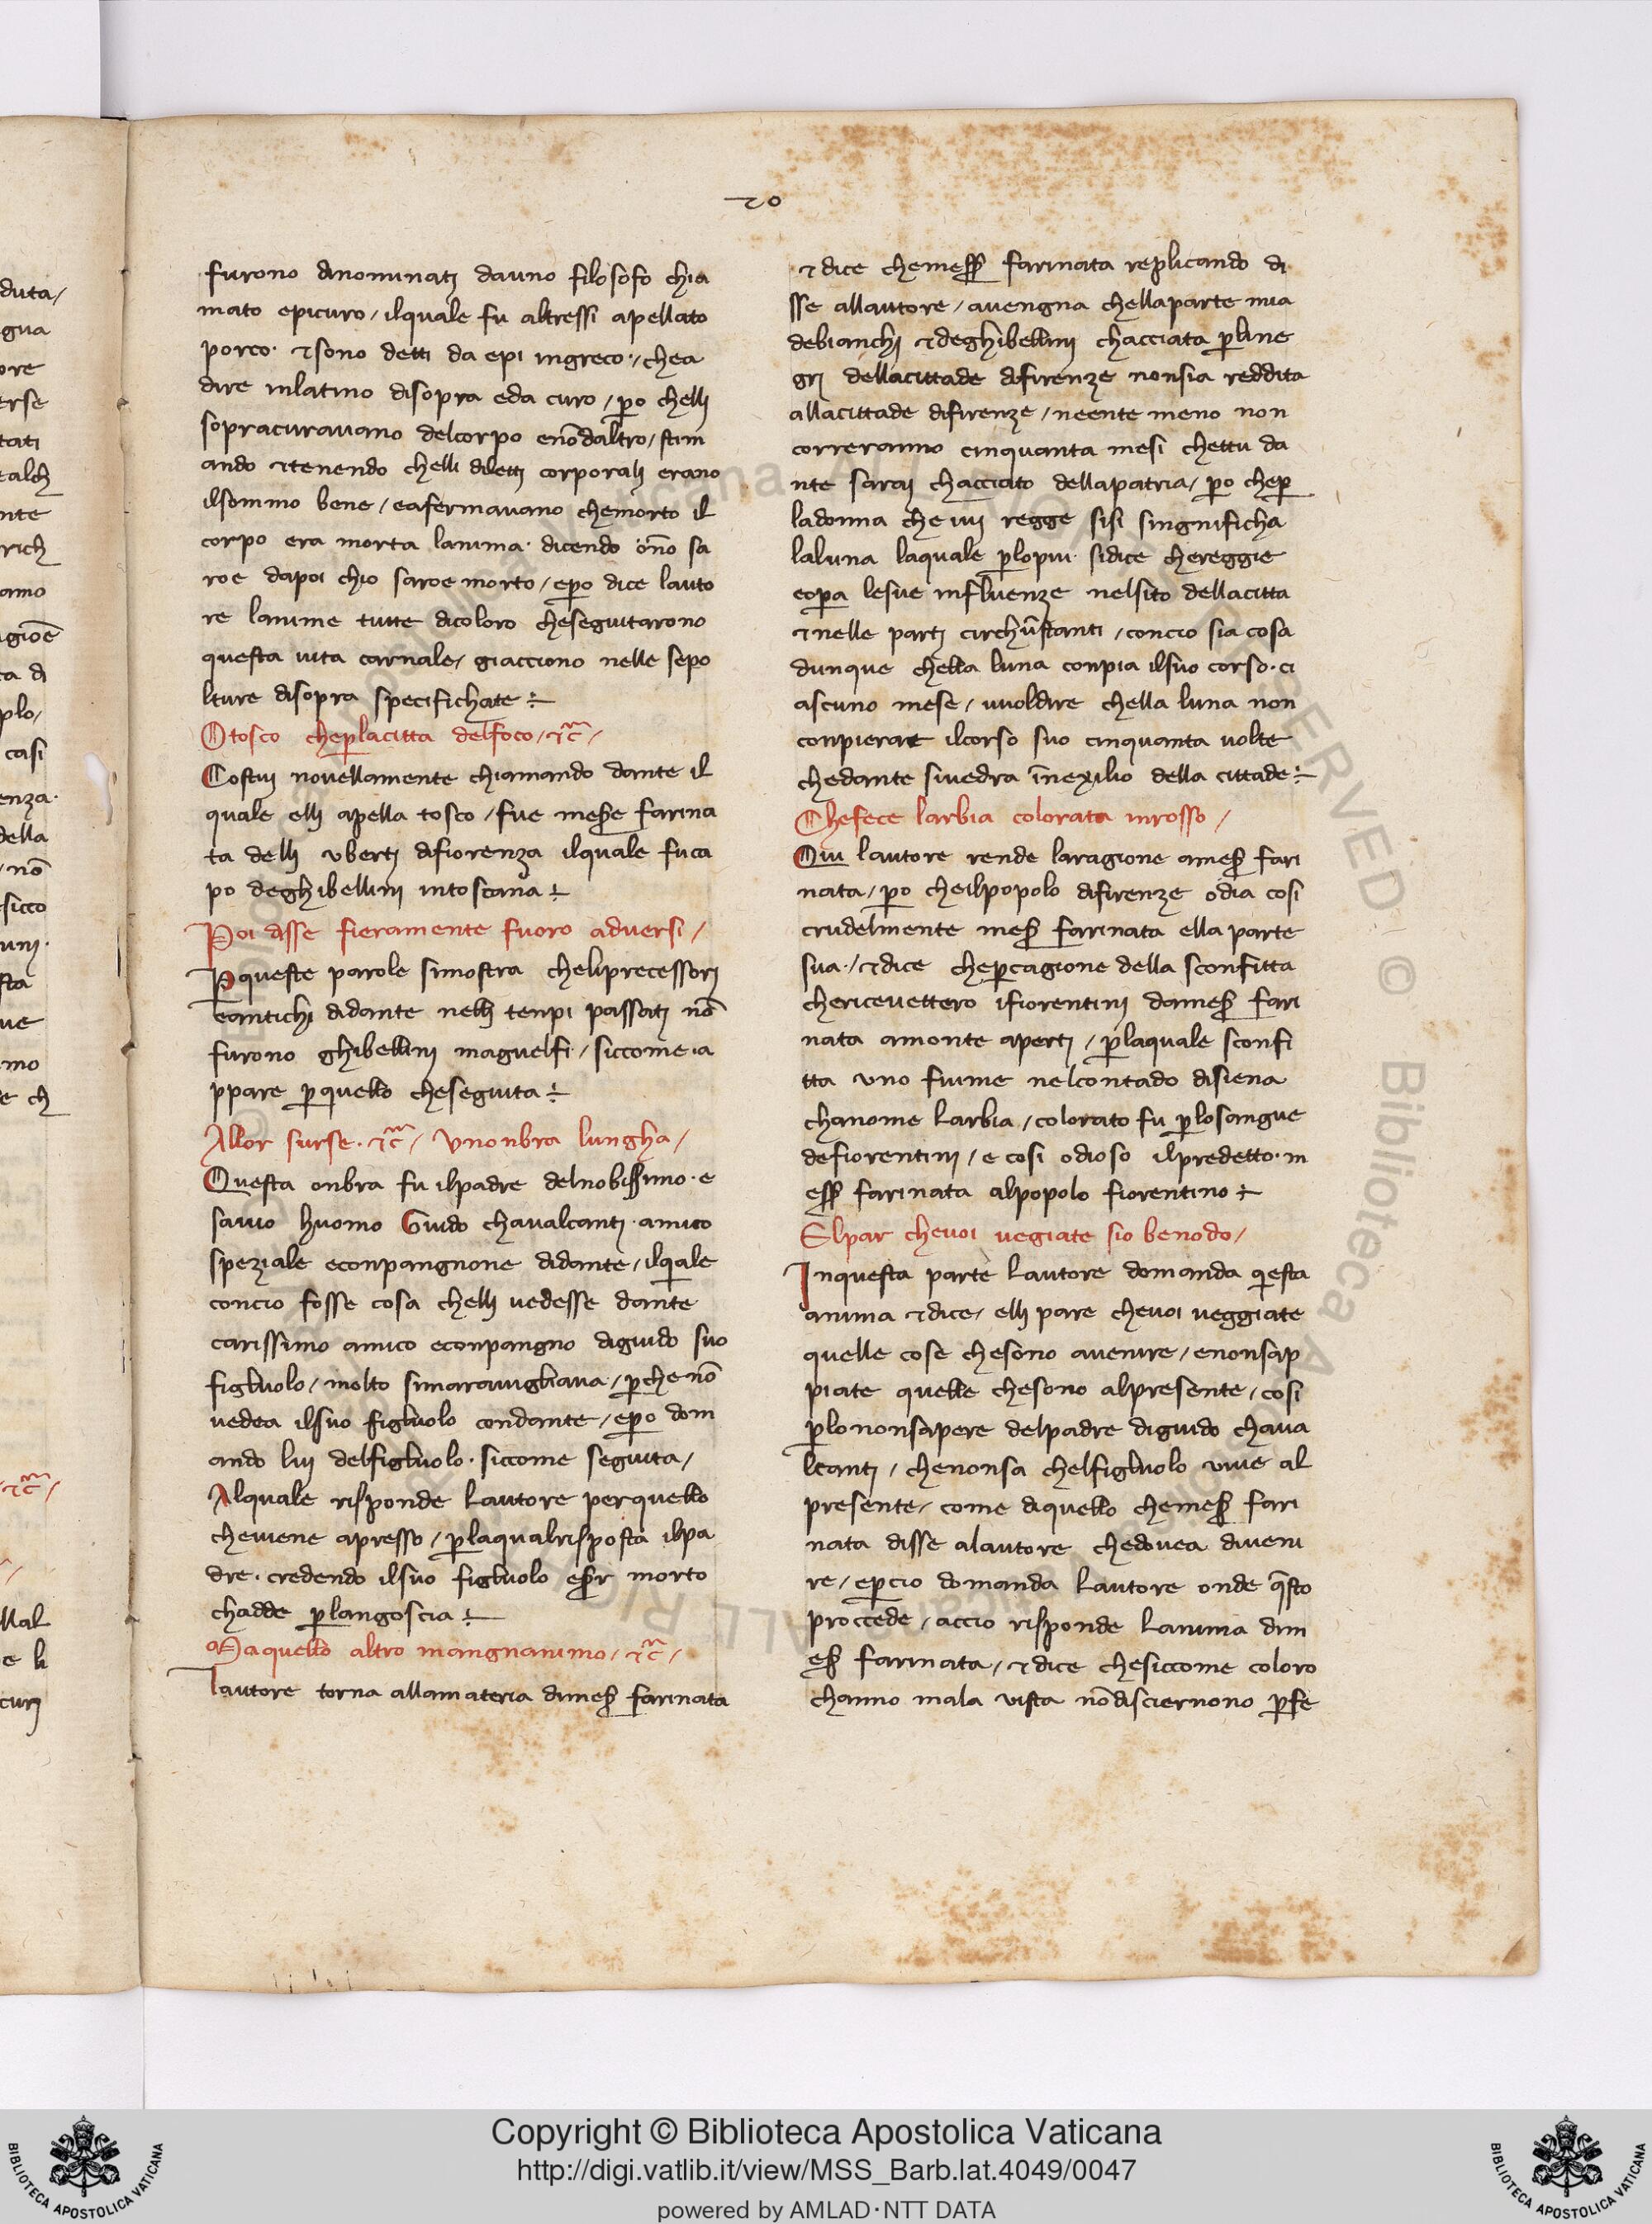 20
furono dinominati dauno filosofo chia
mato epicuro / ilquale fu altressi apellato
porco · ⁊ sono detti da epi ingreco · / chea
dire inlatino disopra eda curo / ꝑo chelli
sopracurauano delcorpo enōdaltro / stim
ando ⁊tenendo chelli diletti corporali erano
ilsommo bene / eafermauano chemorto il
corpo era morta lanima · dicendo ōno sa
roe dapoi chio saroe morto / eꝑo dice lauto
re lanime tutte dicoloro cheseguitarono
questa uita carnale / giacciono nelle sepo
lture disopra specifichate ÷
Otosco cheꝑlacitta delfoco / ⁊c̄ /
Costui nouellamente chiamando dante il
quale elli apella tosco / fue mesꝭe farina
ta delli vberti difiorenza ilquale fuca
po deghibellini intoscana ÷
Poi disse fieramente fuoro aduersi /
Pqueste parole simostra cheliprecessori
eantichi didante nelli tenpi passati nō
furono ghibellini maguelfi / siccome · a
ppare ꝑquello cheseguita ÷
Allor surse · ⁊c̄ / vnonbra lungha /
Questa onbra fu ilpadre delnobissimo · e
sauio huomo Guido chaualcanti · amico
speziale econpangnone didante / ilqiale
concio fosse cosa chelli uedesse dante
carissimo amico econpangno diguido suo
figluolo / molto simarauigliaua / ꝑche nō
uedea ilsuo figluolo condante / eꝑo dom
ando lui delfigluolo · siccome seguita /
Alquale risponde lautore perquello
cheuiene apresso / ꝑlaqualrisposta ilpa
dre · credendo ilsuo figluolo esꝭr morto
chadde ꝑlangoscia ÷
Maquello altro mangnanimo / ⁊c̄ /
lautore torna allamateria dimesꝭ farinata
⁊ dice chemessꝭ farinata replicando di
sse allautore / auengna chellaparte mia
debianchi ⁊deghibellini chacciata ꝑline
gri dellacittade difirenze nonsia reddita
allacittade difirenze / neente meno non
correranno cinquanta mesi chettu da
nte sarai chacciato dellapatria / ꝑo cheꝑ
ladonna che iui regge sisi singnificha
laluna laquale ꝑlopiu · sidice chereggie
eopa lesue influenze nelsito dellacitta
⁊nelle parti circhūstanti / concio sia cosa
dunque chella luna conpia ilsuo corso · ci
ascuno mese / uuoldire chella luna non
conpierae ilcorso suo cinquanta uolte
chedante siuedra īnexilio della cittade ÷
Chefece larbia colorata inrosso /
Qui lautore rende laragione amesꝭ fari
nata / ꝑo cheilpopolo difirenze odia cosi
crudelmente mesꝭ farinata ella parte
sua · / ⁊dice cheꝑcagione della sconfitta
chericeuettero ifiorentini damesꝭ fari
nata amonte aperti / ꝑlaquale sconfi
tta vno fiume nelcontado disiena
chanome larbia / colorato fu ꝑlosangue
defiorentini / e cosi odioso ilpredetto · m
essꝭ farinata alpopolo fiorentino ÷
Elpar cheuoi uegiate sio benodo /
Inquesta parte lautore domanda qiesta
anima ⁊dice / elli pare cheuoi ueggiate
quelle cose chesono auenire / enonsap
piate quelle chesono alpresente / cosi
ꝑlononsapere delpadre diguido chaua
lcanti / chenonsa chelfigluolo viue al
presente / come diquello chemesꝭ fari
nata disse alautore chedouea diueni
re / eꝑcio domanda lautore onde q̄sto
proccede / accio risponde lanima dim
esꝭ farinata / ⁊dice chesiccome coloro
channo mala vista nōdisciernono ꝑfe
Copyright © Biblioteca Apostolica Vaticana
http://digi.vatlib.it/view/MSS_Barb.lat.4049/0047
powered by AMLAD·NTT DATA